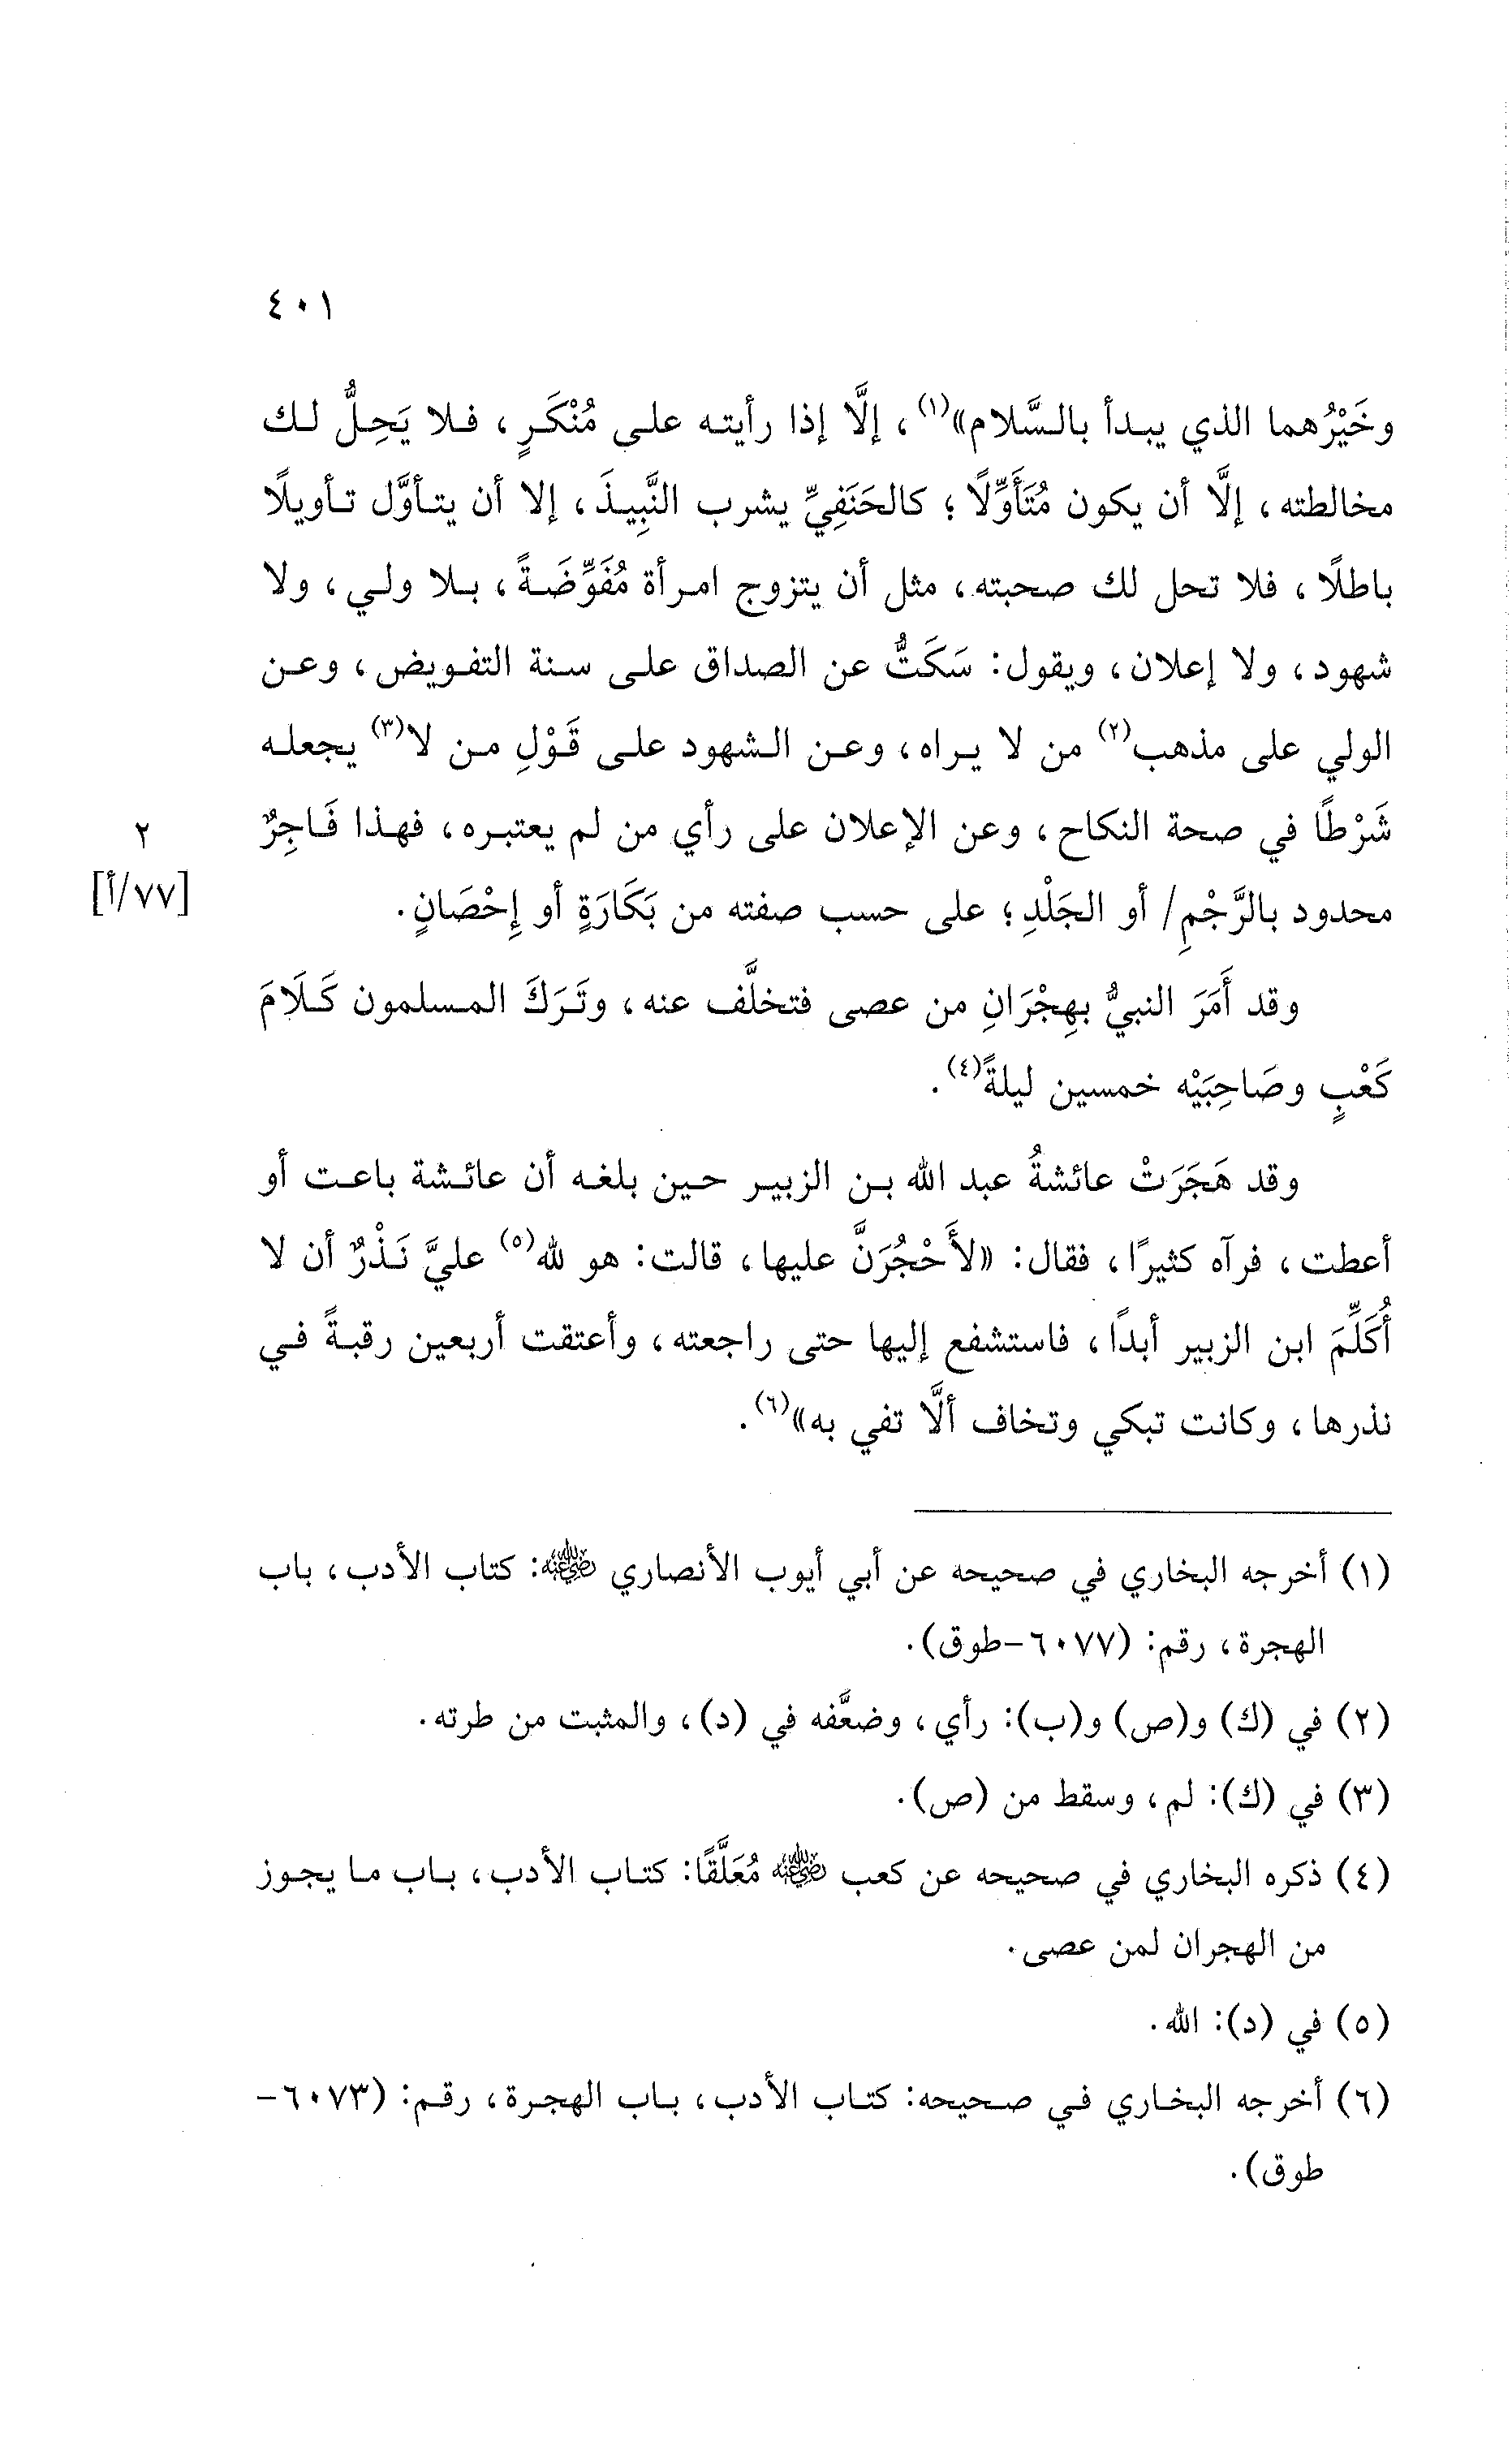 ٤٠١
وخَيْرُهما الذي يبدأ بالسَّلام»(١)، إلَّا إذا رأيته على مُنْكَرٍ، فلا يَحِلُّ لك
مخالطته، إلَّا أن يكون مُتَأَوِّلًا؛ كالحَنَفِيِّ يشرب النَّبِيذَ، إلا أن يتأوَّل تأويلًا
باطلًا، فلا تحل لك صحبته، مثل أن يتزوج امرأة مُفَوِّضَةً، بلا ولي، ولا
شهود، ولا إعلان، ويقول: سَكَتُّ عن الصداق على سنة التفويض، وعن
الولي على مذهب(٢) من لا يراه، وعن الشهود على قَوْلِ من لا(٣) يجعله
شَرْطًا في صحة النكاح، وعن الإعلان على رأي من لم يعتبره، فهذا فَاجِرٌ
٢
محدود بالرَّجْمِ/ أو الجَلْدِ؛ على حسب صفته من بَكَارَةٍ أو إِحْصَانٍ.
[٧٧/أ]
وقد أَمَرَ النبيُّ بهِجْرَانِ من عصى فتخلَّف عنه، وتَرَكَ المسلمون كَلَامَ
كَعْبٍ وصَاحِبَيْه خمسين ليلةً(٤).
وقد هَجَرَتْ عائشةُ عبد الله بن الزبير حين بلغه أن عائشة باعت أو
أعطت، فرآه كثيرًا، فقال: «لأَحْجُرَنَّ عليها، قالت: هو لله(٥) عليَّ نَذْرٌ أن لا
أُكَلِّمَ ابن الزبير أبدًا، فاستشفع إليها حتى راجعته، وأعتقت أربعين رقبةً في
نذرها، وكانت تبكي وتخاف ألَّا تفي به»(٦).
(١) أخرجه البخاري في صحيحه عن أبي أيوب الأنصاري رضي الله عنه: كتاب الأدب، باب
الهجرة، رقم: (٦٠٧٧-طوق).
(٢) في (ك) و(ص) و(ب): رأي، وضعَّفه في (د)، والمثبت من طرته.
(٣) في (ك): لم، وسقط من (ص).
(٤) ذكره البخاري في صحيحه عن كعب رضي الله عنه مُعَلَّقًا: كتاب الأدب، باب ما يجوز
من الهجران لمن عصى.
(٥) في (د): الله.
(٦) أخرجه البخاري في صحيحه: كتاب الأدب، باب الهجرة، رقم: (٦٠٧٣-
طوق).